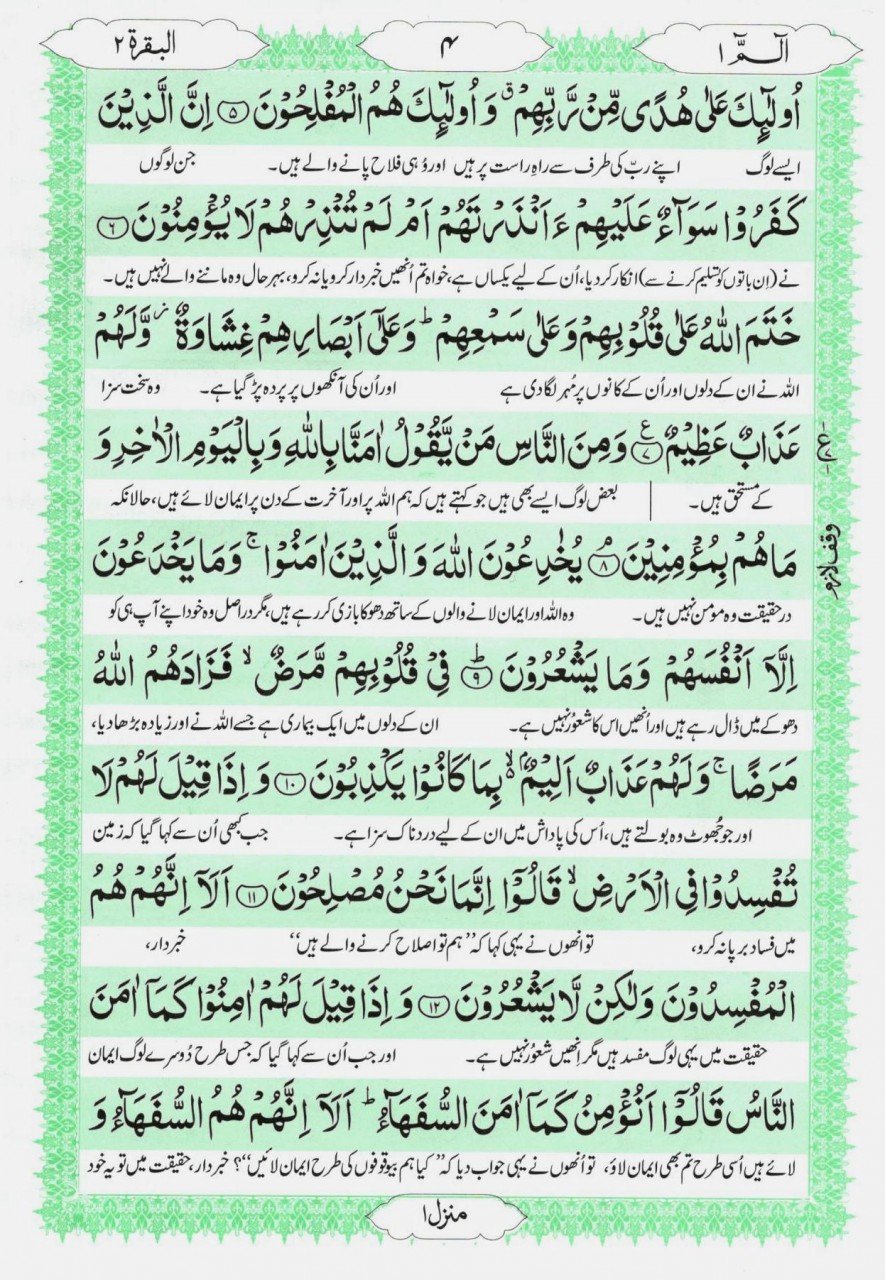 الٓـمّٓ ۱
۴
البقرة ۲
اُولٰٓئِكَ عَلٰى هُدًى مِّنْ رَّبِّهِمْ ۗ وَ اُولٰٓئِكَ هُمُ الْمُفْلِحُوْنَ ۝۵ اِنَّ الَّذِيْنَ
ایسے لوگ اپنے ربّ کی طرف سے راہِ راست پر ہیں اور وُہی فلاح پانے والے ہیں۔ جن لوگوں
كَفَرُوْا سَوَآءٌ عَلَيْهِمْ ءَاَنْذَرْتَهُمْ اَمْ لَمْ تُنْذِرْهُمْ لَا يُؤْمِنُوْنَ ۝۶
نے (اِن باتوں کو تسلیم کرنے سے) انکار کر دیا، اُن کے لیے یکساں ہے، خواہ تم اُنھیں خبردار کرو یا نہ کرو، بہرحال وہ ماننے والے نہیں ہیں۔
خَتَمَ اللّٰهُ عَلٰى قُلُوْبِهِمْ وَعَلٰى سَمْعِهِمْ ؕ وَعَلٰٓى اَبْصَارِهِمْ غِشَاوَةٌ ؗ وَّلَهُمْ
اللہ نے ان کے دلوں اور اُن کے کانوں پر مُہر لگا دی ہے اور اُن کی آنکھوں پر پردہ پڑ گیا ہے۔ وہ سخت سزا
عَذَابٌ عَظِيْمٌ ۝۷ ع وَمِنَ النَّاسِ مَنْ يَّقُوْلُ اٰمَنَّا بِاللّٰهِ وَبِالْيَوْمِ الْاٰخِرِ وَ
کے مستحق ہیں۔ بعض لوگ ایسے بھی ہیں جو کہتے ہیں کہ ہم اللہ پر اور آخرت کے دن پر ایمان لائے ہیں، حالانکہ
وقف لازم
مَا هُمْ بِمُؤْمِنِيْنَ ۝۸ۘ يُخٰدِعُوْنَ اللّٰهَ وَ الَّذِيْنَ اٰمَنُوْا ۚ وَمَا يَخْدَعُوْنَ
درحقیقت وہ مومن نہیں ہیں۔ وہ اللہ اور ایمان لانے والوں کے ساتھ دھوکا بازی کر رہے ہیں، مگر دراصل وہ خود اپنے آپ ہی کو
اِلَّاۤ اَنْفُسَهُمْ وَمَا يَشْعُرُوْنَ ۝۹ؕ فِيْ قُلُوْبِهِمْ مَّرَضٌ ۙ فَزَادَهُمُ اللّٰهُ
دھوکے میں ڈال رہے ہیں اور اُنھیں اس کا شعُور نہیں ہے۔ ان کے دلوں میں ایک بیماری ہے جسے اللہ نے اور زیادہ بڑھا دیا،
مَرَضًا ۚ وَلَهُمْ عَذَابٌ اَلِيْمٌۢ ۙ بِمَا كَانُوْا يَكْذِبُوْنَ ۝۱۰ وَ اِذَا قِيْلَ لَهُمْ لَا
اور جو جُھوٹ وہ بولتے ہیں، اُس کی پاداش میں ان کے لیے دردناک سزا ہے۔ جب کبھی اُن سے کہا گیا کہ زمین
تُفْسِدُوْا فِي الْاَرْضِ ۙ قَالُوْۤا اِنَّمَا نَحْنُ مُصْلِحُوْنَ ۝۱۱ اَلَاۤ اِنَّهُمْ هُمُ
میں فساد برپا نہ کرو، تو انھوں نے یہی کہا کہ “ہم تو اصلاح کرنے والے ہیں” خبردار،
الْمُفْسِدُوْنَ وَلٰكِنْ لَّا يَشْعُرُوْنَ ۝۱۲ وَ اِذَا قِيْلَ لَهُمْ اٰمِنُوْا كَمَاۤ اٰمَنَ
حقیقت میں یہی لوگ مفسد ہیں مگر اِنھیں شعُور نہیں ہے۔ اور جب اُن سے کہا گیا کہ جس طرح دُوسرے لوگ ایمان
النَّاسُ قَالُوْۤا اَنُؤْمِنُ كَمَاۤ اٰمَنَ السُّفَهَآءُ ؕ اَلَاۤ اِنَّهُمْ هُمُ السُّفَهَآءُ وَ
لائے ہیں اُسی طرح تم بھی ایمان لاؤ، تو اُنھوں نے یہی جواب دیا کہ “کیا ہم بیوقوفوں کی طرح ایمان لائیں”؟ خبردار، حقیقت میں تو یہ خود
منزل ۱